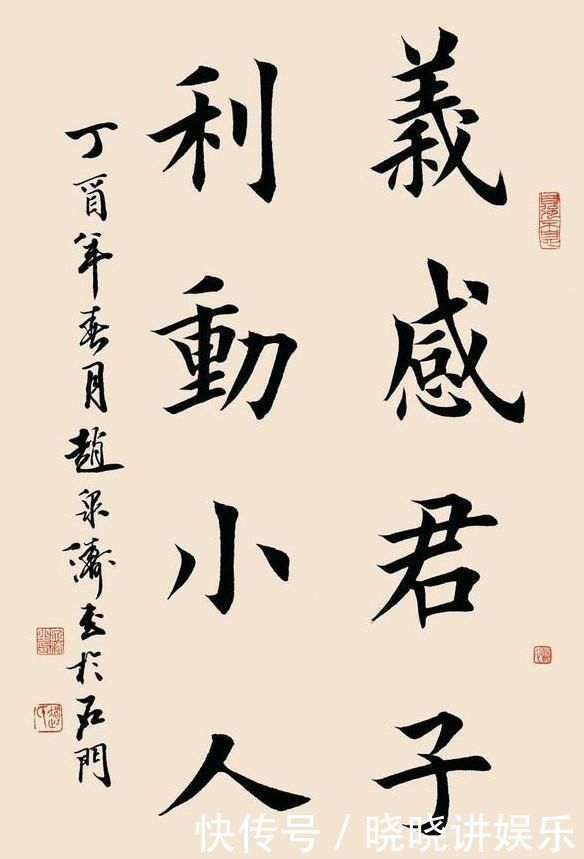 義感君子
利動小人
丁酉年春月趙泉濤書於石門
快传号 / 晓晓讲娱乐